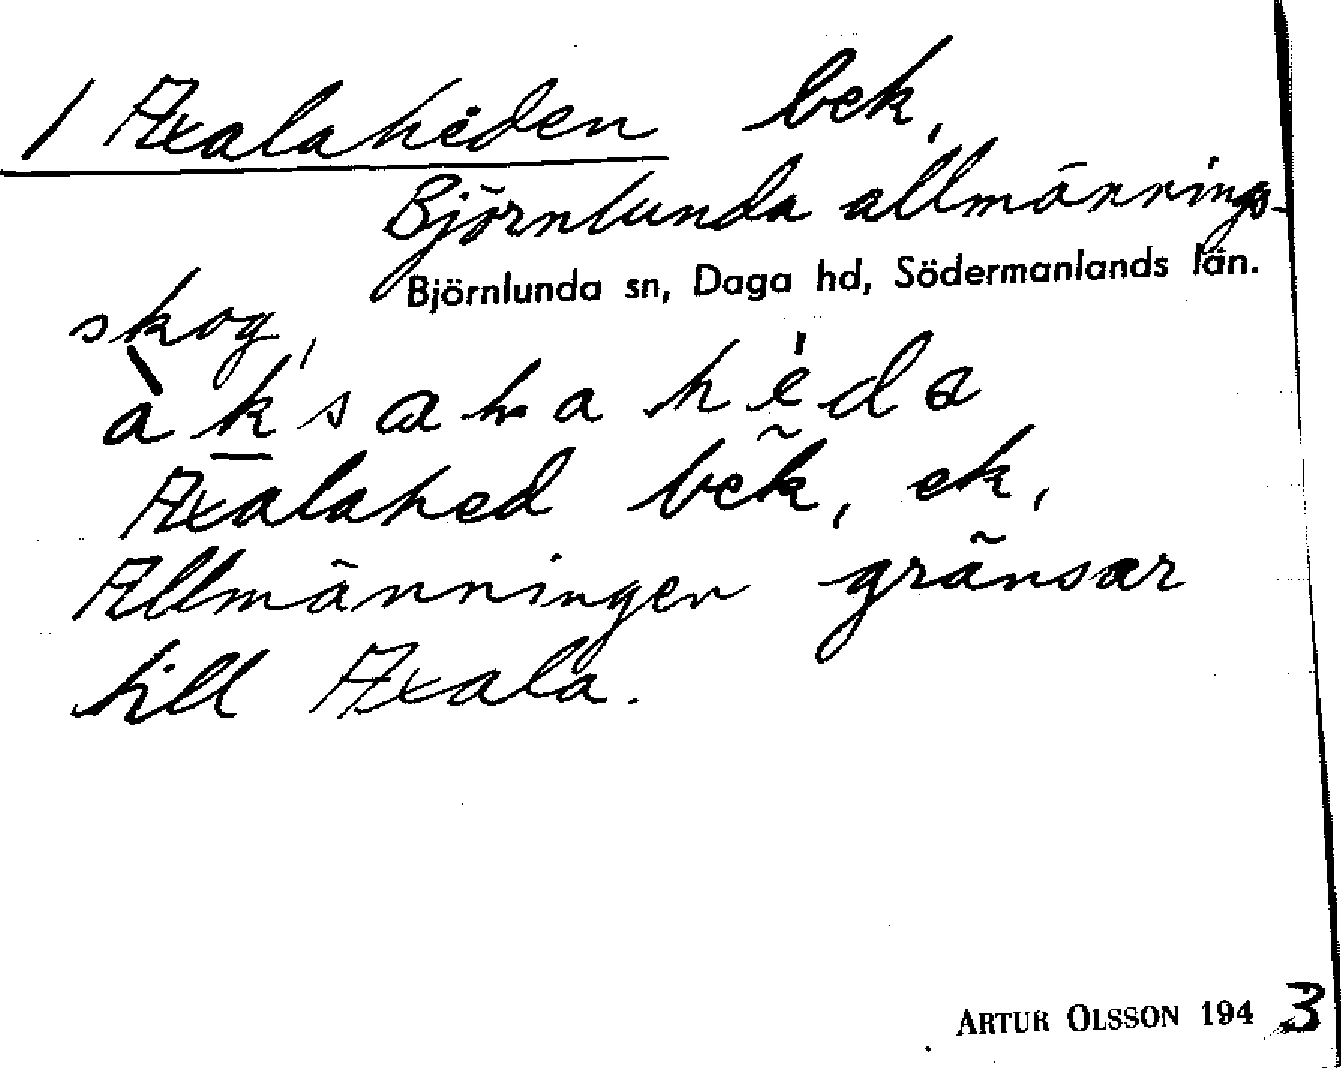 1 Axalaheden bek,
Björnlunda allmännings-
Björnlunda sn, Daga hd, Södermanlands län.
skog,
Axalahed bek, ek,
Allmänningen gränsar
till Axala.
ARTUR OLSSON 1943